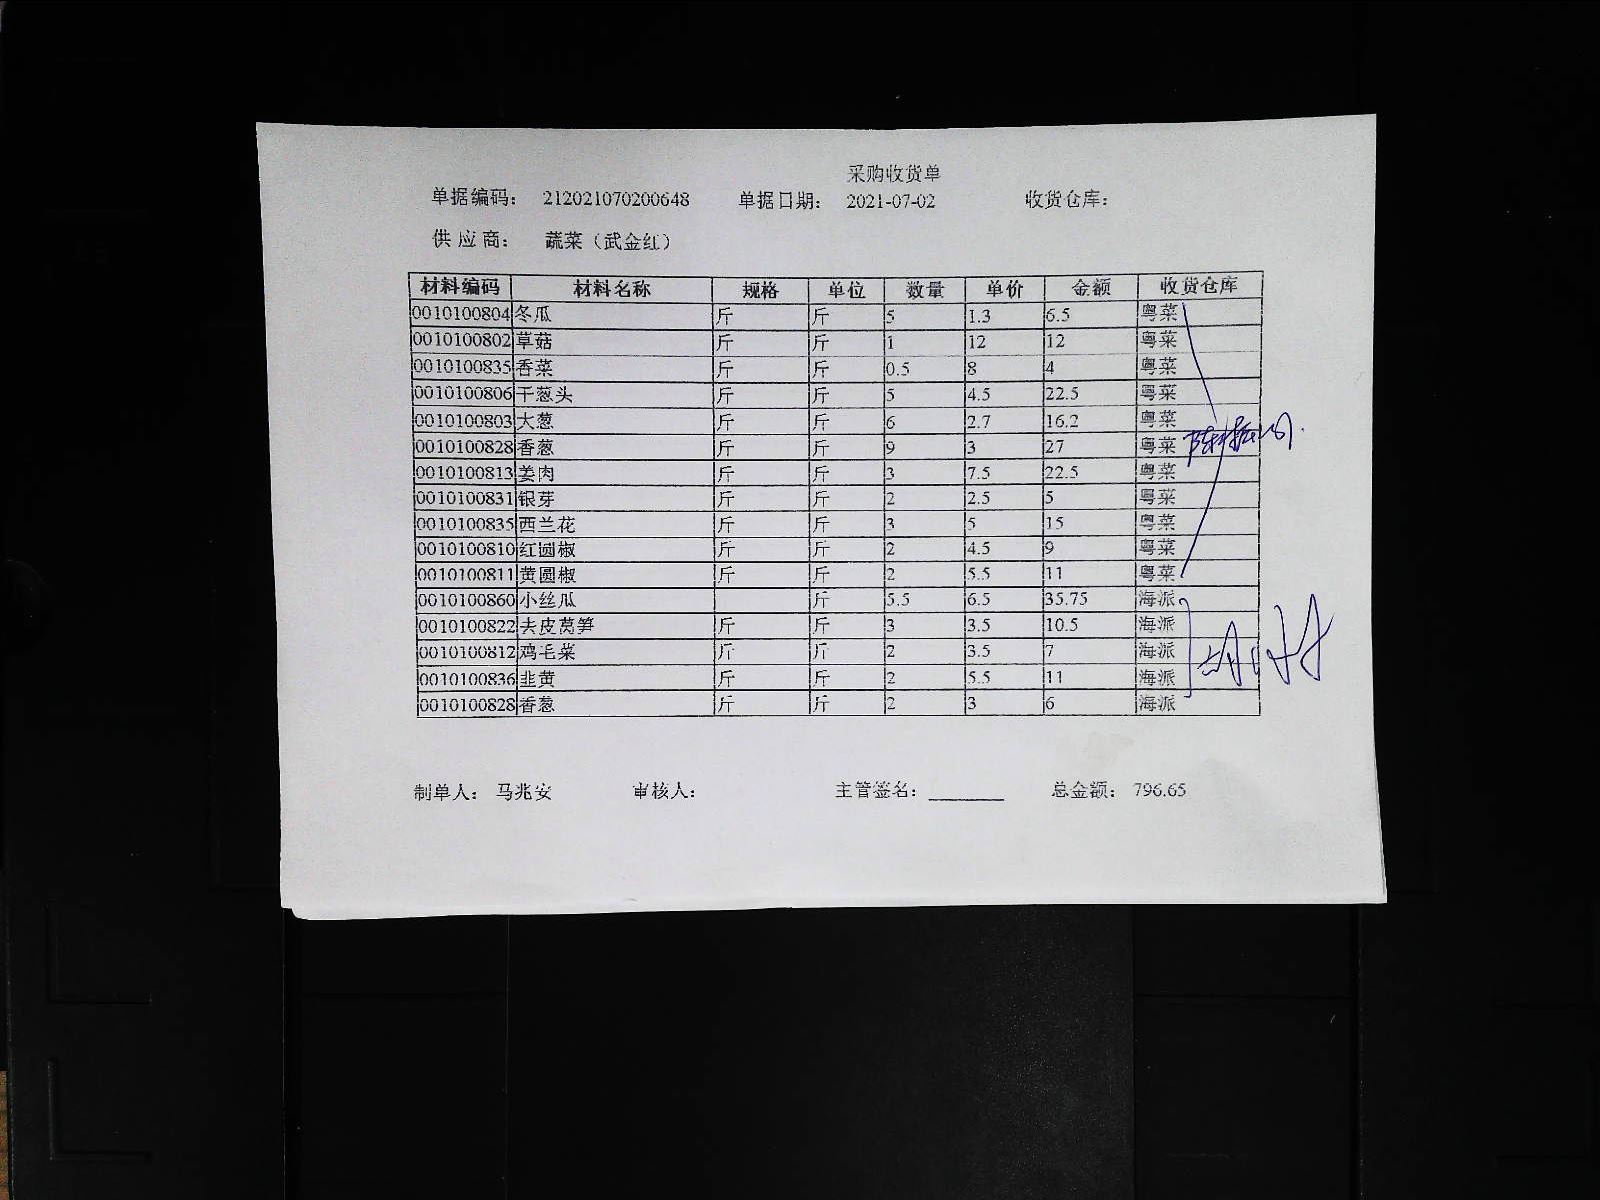 采购收货单
单据编码： 212021070200648 单据日期： 2021-07-02 收货仓库：
供应商： 蔬菜（武金红）
材料编码 材料名称 规格 单位 数量 单价 金额 收货仓库
0010100804 冬瓜 斤 斤 5 1.3 6.5 粤菜
0010100802 草菇 斤 斤 1 12 12 粤菜
0010100835 香菜 斤 斤 0.5 8 4 粤菜
0010100806 干葱头 斤 斤 5 4.5 22.5 粤菜
0010100803 大葱 斤 斤 6 2.7 16.2 粤菜
0010100828 香葱 斤 斤 9 3 27 粤菜
0010100813 姜肉 斤 斤 3 7.5 22.5 粤菜
0010100831 银芽 斤 斤 2 2.5 5 粤菜
0010100835 西兰花 斤 斤 3 5 15 粤菜
0010100810 红圆椒 斤 斤 2 4.5 9 粤菜
0010100811 黄圆椒 斤 斤 2 5.5 11 粤菜
0010100860 小丝瓜 斤 5.5 6.5 35.75 海派
0010100822 去皮莴笋 斤 斤 3 3.5 10.5 海派
0010100812 鸡毛菜 斤 斤 2 3.5 7 海派
0010100836 韭黄 斤 斤 2 5.5 11 海派
0010100828 香葱 斤 斤 2 3 6 海派
制单人： 马兆安 审核人： 主管签名： 总金额： 796.65